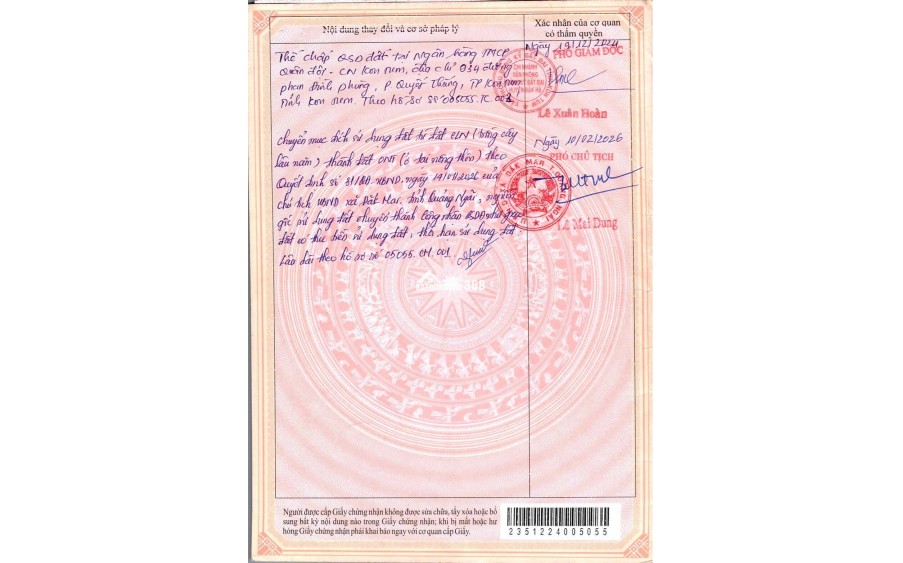 Nội dung thay đổi và cơ sở pháp lý
Xác nhận của cơ quan
có thẩm quyền
Thế chấp QSD đất tại Ngân hàng TMCP
Quân đội - CN Kon Tum, địa chỉ 034 đường
Phan Đình Phùng, P Quyết Thắng, TP Kon Tum
Tỉnh Kon Tum. Theo hồ sơ số 005055.TC.002
Ngày 19/12/2024
PHÓ GIÁM ĐỐC
CHI NHÁNH
VĂN PHÒNG
Lê Xuân Hoàn
Chuyển mục đích sử dụng đất từ đất CLN (trồng cây
lâu năm) thành đất ONT (ở tại nông thôn) theo
Quyết định số ngày 14/01/2026 của
chủ tịch UBND xã Đắk Mar, tỉnh Quảng Ngãi, nguồn
gốc sử dụng đất chuyển thành công nhận QSDĐ như giao
đất có thu tiền sử dụng đất, thời hạn sử dụng đất:
Lâu dài theo hồ sơ số 05055.CM.001.
Ngày 10/02/2026
PHÓ CHỦ TỊCH
XÃ ĐĂK MAR
Lê Mei Dung
Người được cấp Giấy chứng nhận không được sửa chữa, tẩy xóa hoặc bổ
sung bất kỳ nội dung nào trong Giấy chứng nhận; khi bị mất hoặc hư
hỏng Giấy chứng nhận phải khai báo ngay với cơ quan cấp Giấy.
2351224005055